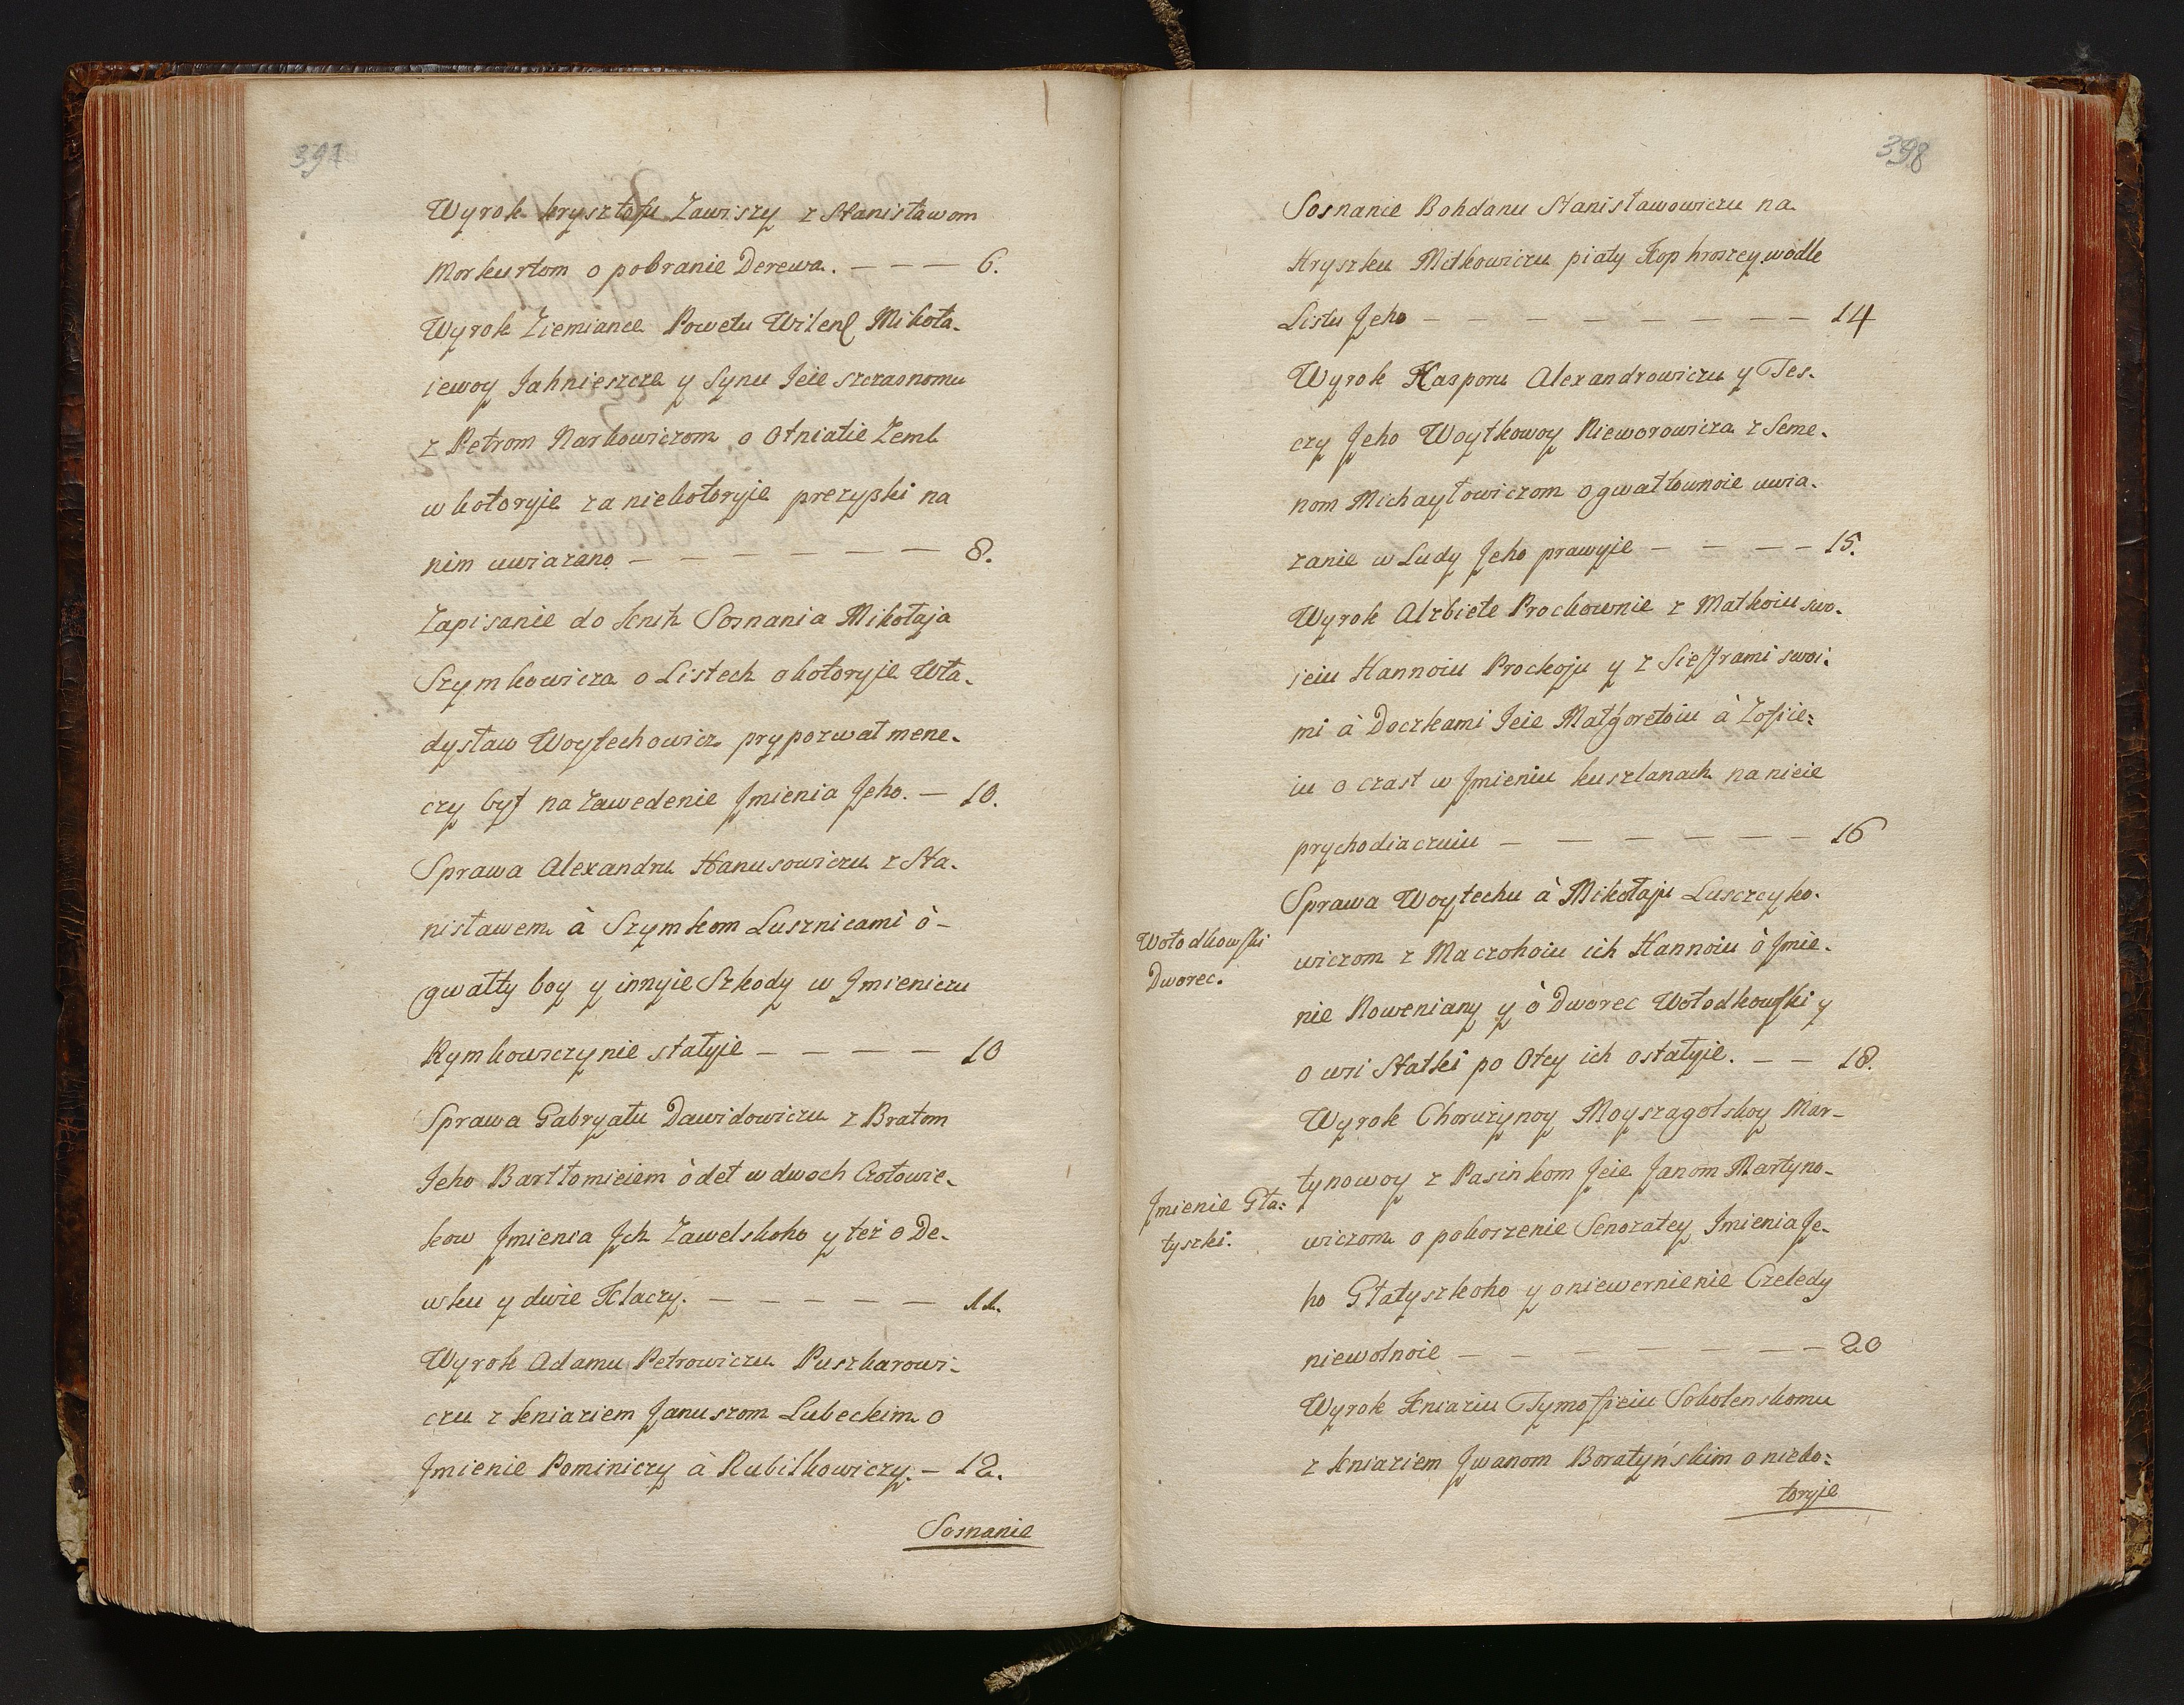 397
Wyrok krysztofu Zawiszy z Stanisławom
Morkurtom o pobranie Derewa. — — — 6.
Wyrok Ziemiance Powetu Wilenſ Mikoła-
iewoy Jahnieszce y Synu Jeie szczasnomu
z Petrom Narkowiczom o Otniatie Zeml
w kotoryie za niekotoryje prezyski na
nim uwiazano — — — — — — 8.
Zapisanie do knih Sosnania Mikołaja
Szymkowicza o Listech o kotoryje Wła-
dysław Woytechowicz prypozwał mene-
czy był na zawedenie Jmienia Jeho. — 10.
Sprawa Alexandru Hanusowiczu z Sta-
nisławem à Szymkom Lusznicami ò-
gwałty boy y innyie Szkody w Jmieniczu
Rymkowszczynie stałyie — — — — 10
Sprawa Gabryału Dawidowiczu z Bratom
Jeho Bartłomieiem òdeł w dwoch Czołowie-
kow Jmienia Jch Zawelskoho y też o De-
wku y dwie Klaczy. — — — — — 11.
Wyrok Adamu Petrowiczu Puszkarowi-
czu z kniaziem Januszom Lubeckim o
Jmienie Pominiczy à Rubilkowiczy. — 12.
Sosnanie
398
Sosnanie Bohdanu Stanisławowiczu na
Hryszku Mitkowiczu piaty Kop hroszey wodle
Listu Jeho — — — — — — — — 14
Wyrok Kasporu Alexandrowiczu y Tes-
czy Jeho Woytkowoy Nieworowicza z Seme-
nom Michayłowiczom o gwałtownoie uwia-
zanie w Ludy Jeho prawyje — — — — 15.
Wyrok Alzbiete Prockownie z Matkoiu swo-
ieiu Hannoiu Prockoju y z Siestrami swoi-
mi à Doczkami Jeie Małgoretoiu à Zofiie=
iu o czast w Jmieniu kuszlanach na nieie
prychodiaczuiu — — — — — — 16
Sprawa Woytechu à Mikołaju Lusczcyko-
wiczom z Maczohoiu ich Hannoiu ò Jmie-
Wołodkowſki
Dworec.
nie Noweniany y ò Dworec Wołodkowſki y
o wsi Statki po Otcy ich ostałyie. — — 18.
Wyrok Choruzynoy Moyszagolskoy Mar-
tynowoy z Pasinkom Jeie Janom Martyno-
Jmienie Gła=
tyszki.
wiczom o pokoszenie Senozatey Jmienia Je-
ho Głatyszkoho y o niewernienie Czeledy
niewolnoie — — — — — — — 20
Wyrok Kniaziu Tymoffieiu Sokolenskomu
z kniaziem Jwanom Boratyńskim o nieko=
toryje